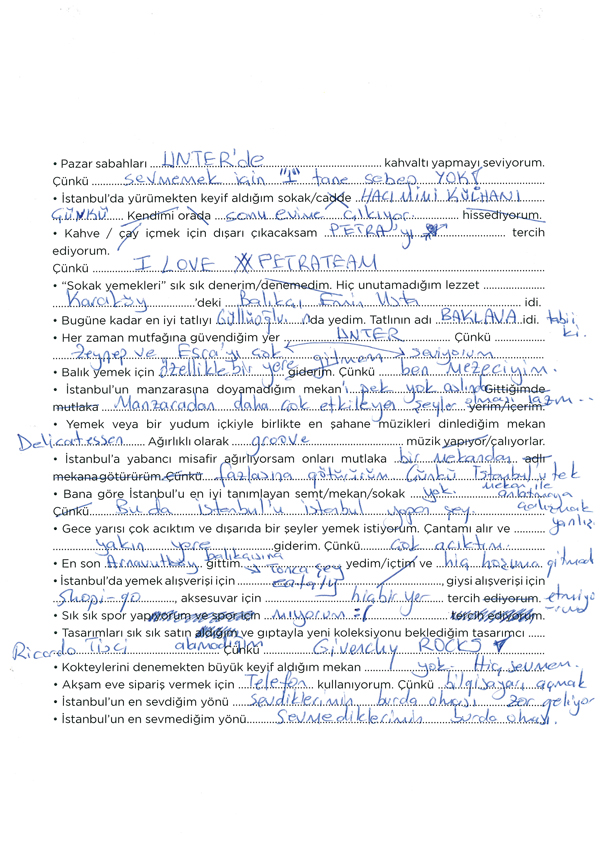 • Pazar sabahları UNTER'de kahvaltı yapmayı seviyorum.
Çünkü sevmemek için "1" tane sebep YOK!
• İstanbul'da yürümekten keyif aldığım sokak/cadde HACI MİMİ KÜLHANI
GÜNKÜ Kendimi orada sonu evime çıkıyor hissediyorum.
• Kahve / çay içmek için dışarı çıkacaksam PETRA'yı tercih
ediyorum.
Çünkü I LOVE PETRATEAM
• "Sokak yemekleri" sık sık denerim/denemedim. Hiç unutamadığım lezzet
Karaköy 'deki Balıkçı Emin Usta idi.
• Bugüne kadar en iyi tatlıyı Güllüoğlu 'nda yedim. Tatlının adı BAKLAVA idi. tabii
ki.
• Her zaman mutfağına güvendiğim yer UNTER Çünkü
Zeynep ve Esra'yı çok seviyorum
• Balık yemek için özellikle bir yere gitmem giderim. Çünkü ben Mezeciyim.
• İstanbul'un manzarasına doyamadığım mekan'ı pek yok aslında Gittiğimde
mutlaka Manzaradan daha çok etkileyen şeyler olması lazım... yerim/içerim.
• Yemek veya bir yudum içkiyle birlikte en şahane müzikleri dinlediğim mekan
Delicatessen Ağırlıklı olarak groove müzik yapıyor/çalıyorlar.
• İstanbul'a yabancı misafir ağırlıyorsam onları mutlaka bir mekandan adlı
mekana götürürüm. Çünkü fazlasına götürürüm Çünkü İstanbul'u tek
mekan ile
• Bana göre İstanbul'u en iyi tanımlayan semt/mekan/sokak yok. anlatmaya
Çünkü Bu da İstanbul'u İstanbul yapan şey. çalışmak
yanlış
• Gece yarısı çok acıktım ve dışarıda bir şeyler yemek istiyorum. Çantamı alır ve
yakın yere giderim. Çünkü çok acıktım.
• En son Arnavutköy balıkçısına gittim. yedim/içtim ve hiç hoşuma gitmedi
• İstanbul'da yemek alışverişi için , giysi alışverişi için
Shopi-go , aksesuvar için hiçbir yer tercih ediyorum. etmiyo
rum
• Sık sık spor yapıyorum ve spor için mıyorum =( tercih ediyorum.
• Tasarımları sık sık satın aldığım ve gıptayla yeni koleksiyonu beklediğim tasarımcı
Ricardo Tisci alamadığım Çünkü Givenchy ROCKS
• Kokteylerini denemekten büyük keyif aldığım mekan yok. Hiç sevmem.
• Akşam eve sipariş vermek için Telefon kullanıyorum. Çünkü bilgisayarı açmak
zor geliyor
• İstanbul'un en sevdiğim yönü sevdiklerimin burda olması
• İstanbul'un en sevmediğim yönü Sevmediklerimin burda olması.